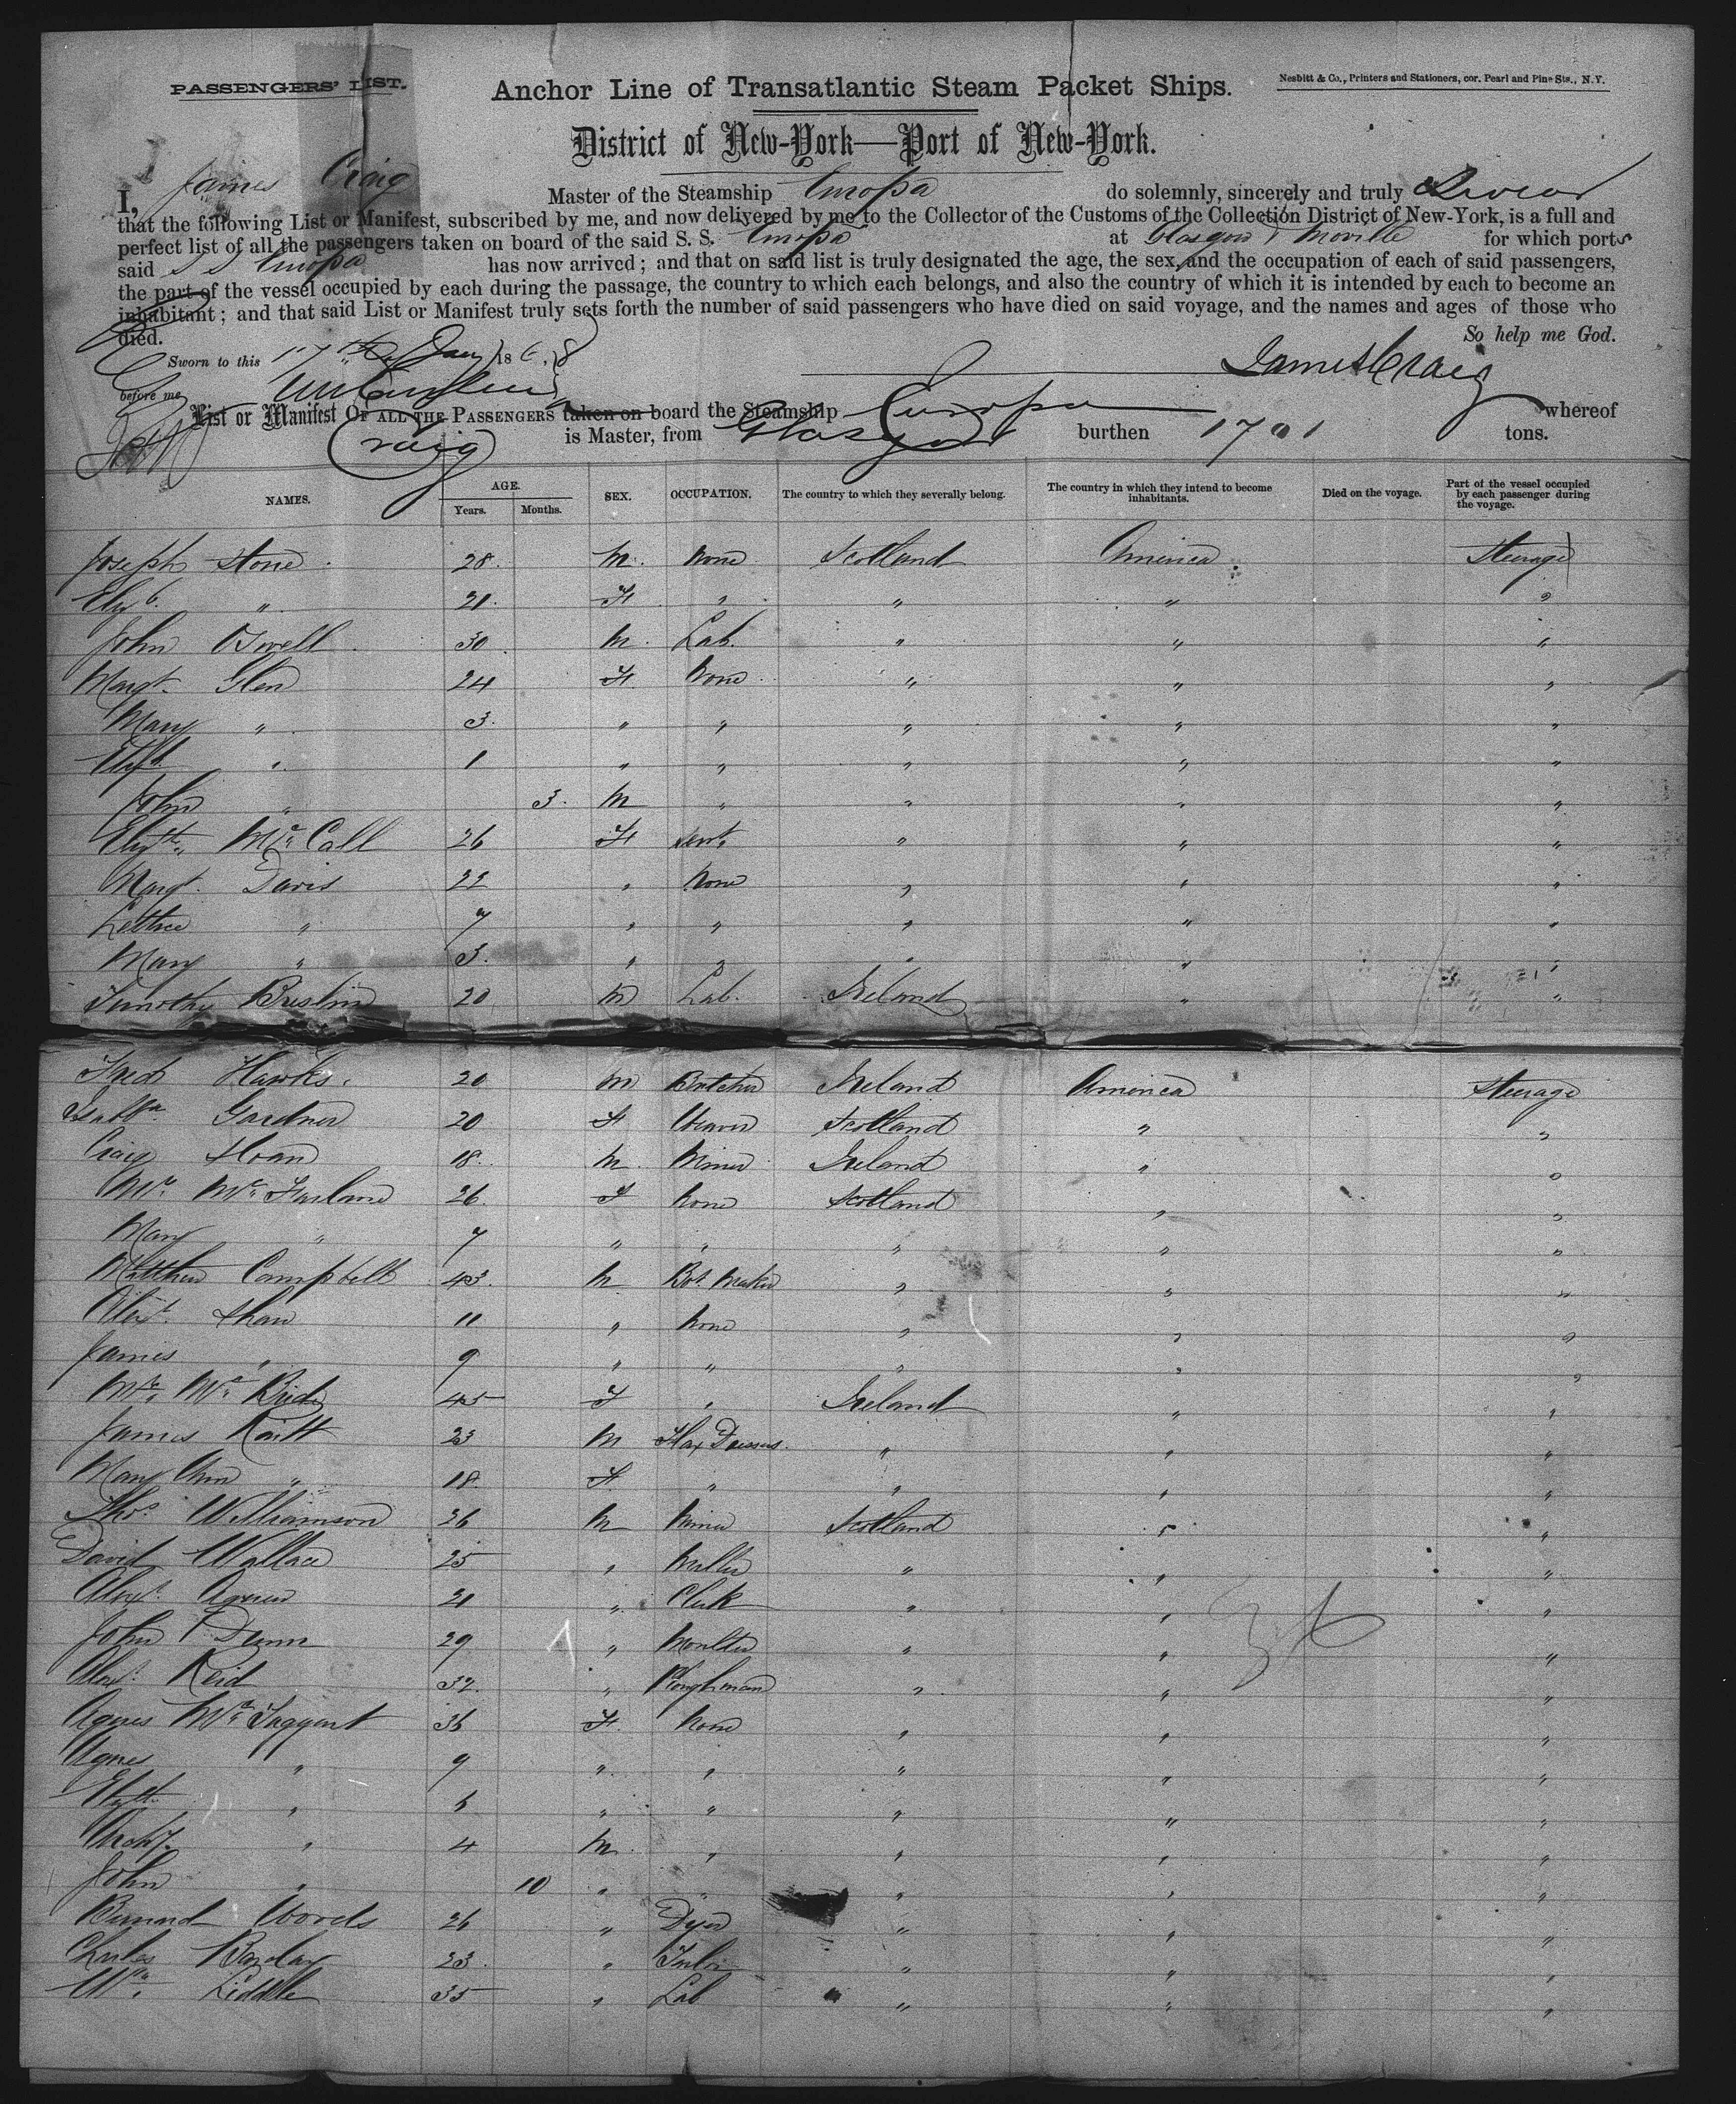 PASSENGERS' LIST.
Anchor Line of Transatlantic Steam Packet Ships.
Nesbitt & Co., Printers and Stationers, cor. Pearl and Pine Sts., N.Y.
District of New-York—Port of New-York.
I, James Craig Master of the Steamship Europa do solemnly, sincerely and truly Swear
that the following List or Manifest, subscribed by me, and now delivered by me to the Collector of the Customs of the Collection District of New-York, is a full and
perfect list of all the passengers taken on board of the said S. S. Europa at Glasgow & Moville for which ports
said S S Europa has now arrived; and that on said list is truly designated the age, the sex, and the occupation of each of said passengers,
the part of the vessel occupied by each during the passage, the country to which each belongs, and also the country of which it is intended by each to become an
inhabitant; and that said List or Manifest truly sets forth the number of said passengers who have died on said voyage, and the names and ages of those who
died. So help me God.
Sworn to this 17th Jany 1868 James Craig
before me
List or Manifest OF ALL THE PASSENGERS taken on board the Steamship Europa whereof
Craig is Master, from Glasgow burthen 1701 tons.
NAMES. AGE. Years. Months. SEX. OCCUPATION. The country to which they severally belong. The country in which they intend to become inhabitants. Died on the voyage. Part of the vessel occupied by each passenger during the voyage.
Joseph Stone 28 M. None Scotland America Steerage
Elizb. " 21 F " " " "
John 30 M. Lab. " " "
Margt. Glen 24 F None " " "
Mary " 3 " " " " "
Elizb. " 1 " " " " "
John " 3 M " " " "
Elizth. McCall 26 F Servt. " " "
Margt. Davis 22 " None " " "
Lettice " 7 " " " " "
Mary " 3 " " " " "
Timothy Breslin 20 M Lab. Ireland " "
Fred Hawks 20 M Butcher Ireland America Steerage
Isabella Gardner 20 F Weaver Scotland " "
Craig Sloan 18 M Miner Ireland " "
McFarland 26 F None Scotland " "
Mary " 7 " " " " "
Matthew Campbell 43 M Bot. Maker " " "
Alext. Shaw 11 " None " " "
James " 9 " " " " "
Mrs. McBride 45 F " Ireland " "
James Raitt 23 M Flax Dresser " " "
Mary Ann " 18 F " " " "
Thos. Williamson 26 M Miner Scotland " "
David Wallace 25 " " " "
Alext. Agnew 21 " Clerk " " "
John Dunn 29 " Moulder " " "
Alext. Reid 32 " Ploughman " " "
Agnes McTaggert 36 F None " " "
Agnes " 9 " " " " "
Elizth. " 6 " " " " "
Archd. " 4 M " " " "
John " 10 " " " " "
Bernard Woods 26 " Dyer " " "
Charles Barclay 23 " Tailor " " "
Wm. Liddle 35 " Lab " " "